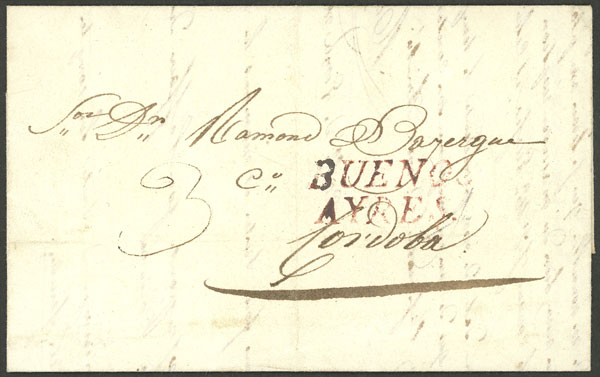 Sor. Dn. Ramond Bazergue
3 Co. BUENOS
AYRES
Cordoba